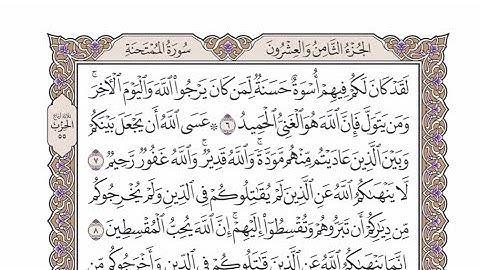 الجُزْءُ الثَّامِنُ وَالعِشْرُونَ
سُورَةُ المُمْتَحنَةِ
لَقَدْ كَانَ لَكُمْ فِيهِمْ أُسْوَةٌ حَسَنَةٌ لِّمَن كَانَ يَرْجُوا۟ ٱللَّهَ وَٱلْيَوْمَ ٱلْأَخِرَۚ
وَمَن يَتَوَلَّ فَإِنَّ ٱللَّهَ هُوَ ٱلْغَنِىُّ ٱلْحَمِيدُ ٦ ۞ عَسَى ٱللَّهُ أَن يَجْعَلَ بَيْنَكُمْ
وَبَيْنَ ٱلَّذِينَ عَادَيْتُم مِّنْهُم مَّوَدَّةًۚ وَٱللَّهُ قَدِيرٌۚ وَٱللَّهُ غَفُورٌ رَّحِيمٌ ٧
لَّا يَنْهَىٰكُمُ ٱللَّهُ عَنِ ٱلَّذِينَ لَمْ يُقَٰتِلُوكُمْ فِى ٱلدِّينِ وَلَمْ يُخْرِجُوكُم
مِّن دِيَٰرِكُمْ أَن تَبَرُّوهُمْ وَتُقْسِطُوٓا۟ إِلَيْهِمْۚ إِنَّ ٱللَّهَ يُحِبُّ ٱلْمُقْسِطِينَ ٨
إِنَّمَا يَنْهَىٰكُمُ ٱللَّهُ عَنِ ٱلَّذِينَ قَٰتَلُوكُمْ فِى ٱلدِّينِ وَأَخْرَجُوكُم مِّن
الحِزْبُ
٥٥